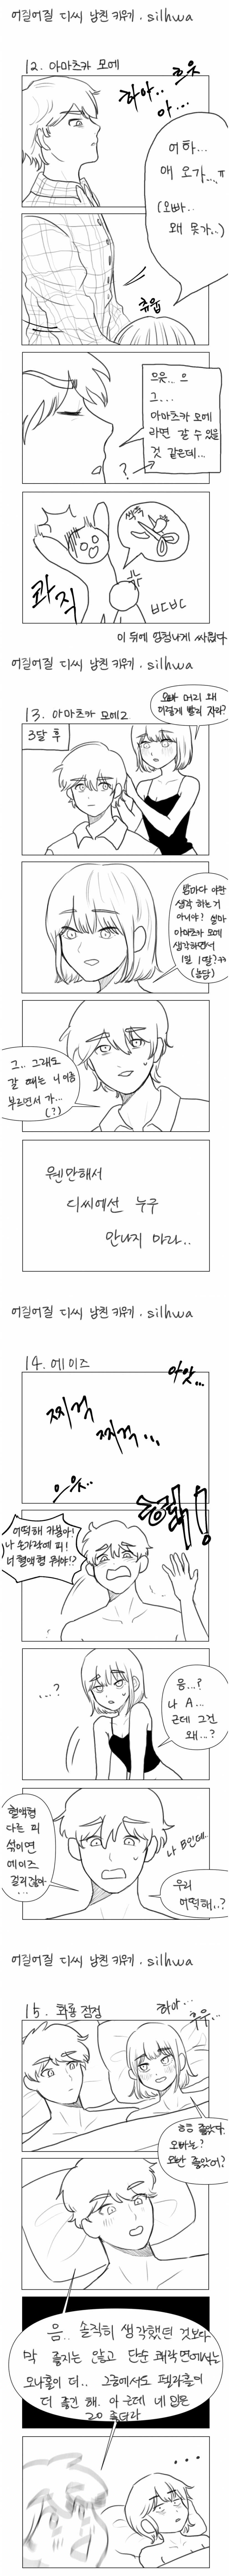 어질어질 디씨 남친 키우기 . silhwa
12. 아마츠카 모에
흐읏
하아..
아...
어하...
왜 오가...ㅠ
(오빠..
왜 못가..)
츄웁
으읏... 으
그...
아마츠카 모에
라면 갈 수 있을
것 같은데...
?
싹둑
콰직
부드부드
이 뒤에 엄청나게 싸웠다
어질어질 디씨 남친 키우기 . silhwa
13. 아마츠카 모에2
3달 후
오빠 머리 왜
이렇게 빨리 자라?
뭔
생각 하는거
아니야? 설마
아마츠카 모에
생각하면서
1일 1딸?ㅋㅋ
(농담)
그.. 그래도
갈 때는 니 이름
부르면서 가...
(?)
웬만해서
디씨에선 누구
만나지 마라..
어질어질 디씨 남친 키우기 . silhwa
14. 에이즈
아앗...
찌걱
찌걱...
으읏..
어떡해 카봉아!
나 손가락에 피!
너 혈액형 뭐야!?
...?
응...?
나 A...
근데 그건
왜...?
혈액형
다른 피
섞이면
에이즈
걸리잖아
...
나 B인데..
우리
어떡해..?
어질어질 디씨 남친 키우기 . silhwa
15. 화룡점정
하아...
후우...
흐음 좋았다
오빠는?
오빤 좋았어?
음.. 솔직히 생각했던 것보다
막 좋지는 않고 단순 쾌락면에서는
오나홀이 더.. 그중에서도 펠라홀이
더 좋긴 해. 아 근데 네 입은
그 좋더라
...